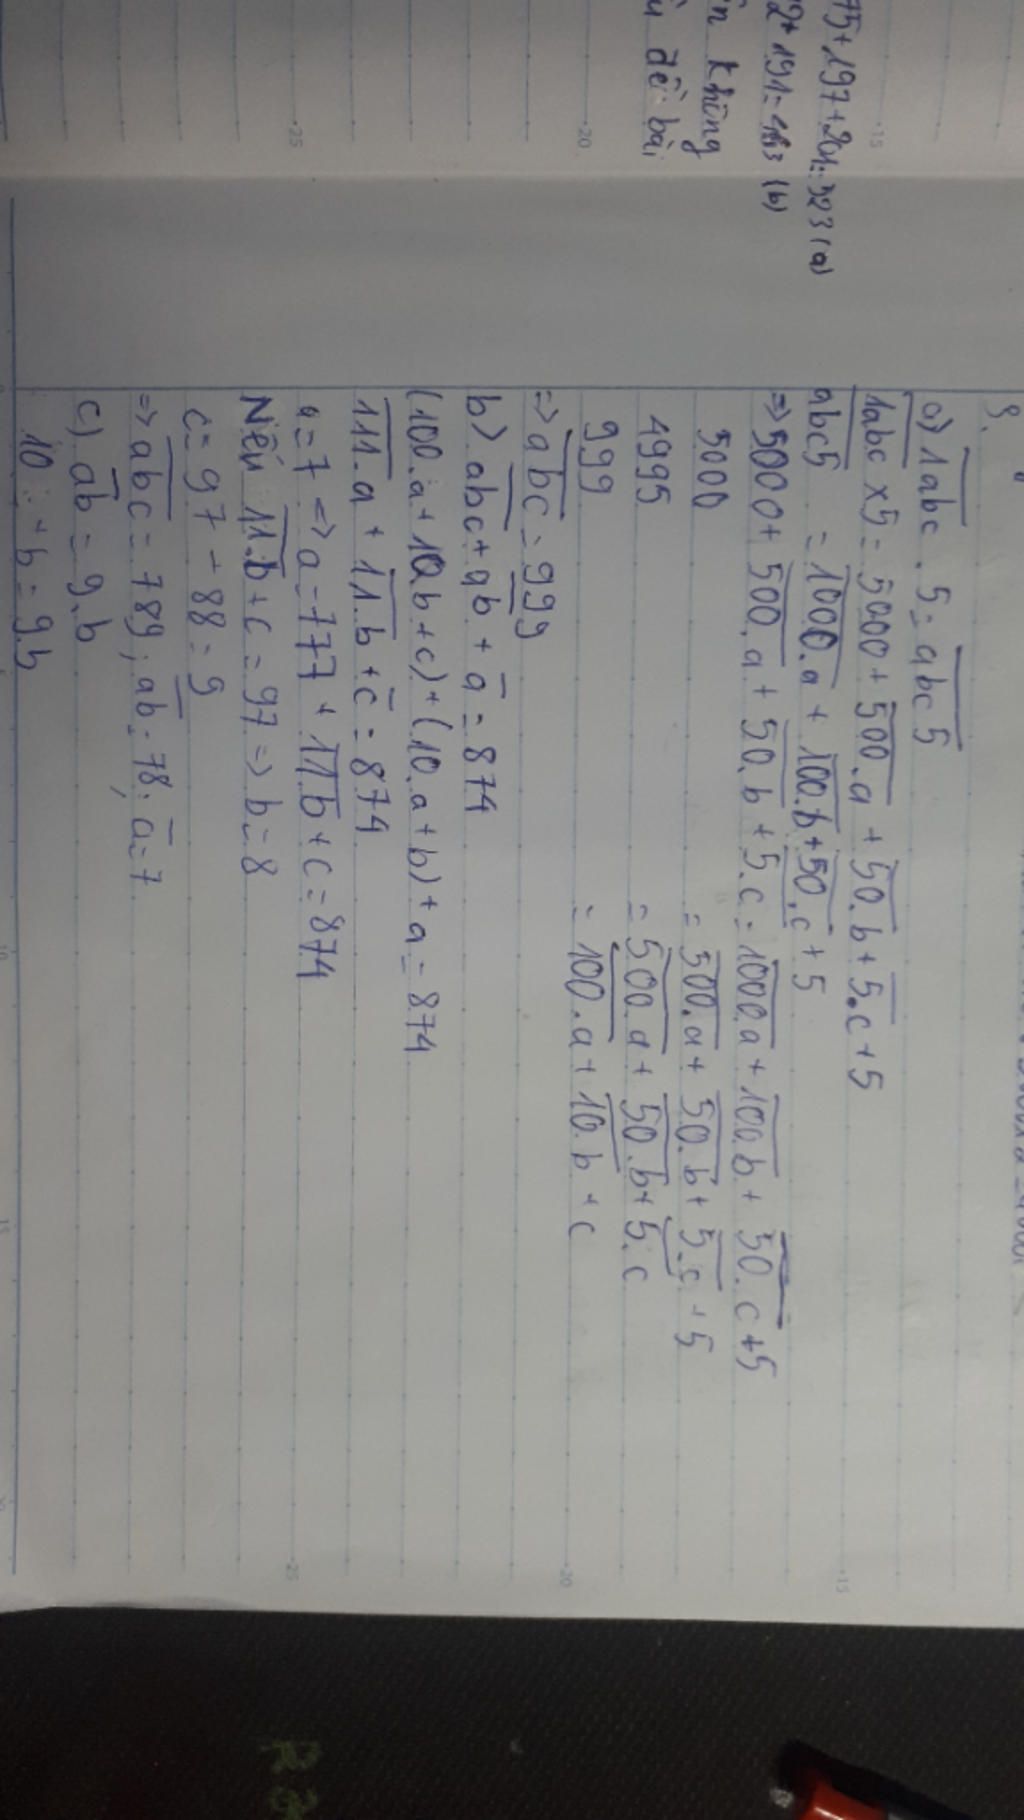 75+197+201=323(a)
2+191=463(b)
n không
đề bài
8.
a) 1abc . 5 = abc5
1abc x5 = 5000 + 500.a + 50.b + 5.c + 5
abc5 = 1000.a + 100.b + 50.c + 5
=> 5000 + 500.a + 50.b + 5.c = 1000.a + 100.b + 50.c + 5
5000 = 500.a + 50.b + 5.c + 5
4995 = 500.a + 50.b + 5.c
999 = 100.a + 10.b + c
=> abc = 999
b) abc + ab + a = 874
(100.a + 10b + c) + (10.a + b) + a = 874
111.a + 11.b + c = 874
a = 7 => a = 777 + 11.b + c = 874
Nếu 11.b + c = 97 => b = 8
c = 97 - 88 = 9
=> abc = 789; ab = 78; a = 7
c) ab = 9.b
10 + b = 9.b